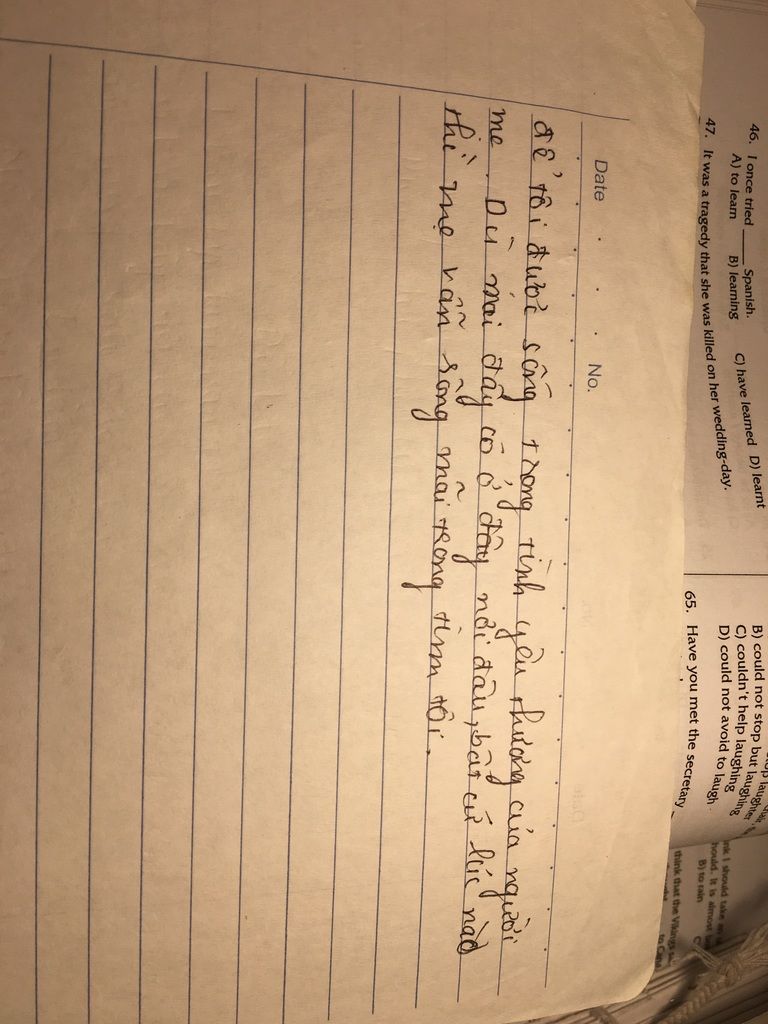 Date . . . No.
để tôi được sống trong tình yêu thương của người
mẹ. Dù mai đây có ở đây nơi đâu, bất cứ lúc nào
thì mẹ vẫn sống mãi trong tim tôi.
46. I once tried ______ Spanish.
A) to learn B) learning C) have learned D) learnt
47. It was a tragedy that she was killed on her wedding-day.
B) could not stop but laughing
C) couldn't help laughing
D) could not avoid to laugh
65. Have you met the secretary
nk I should take an
hould. It is almost
B) to rain
think that the Vikings